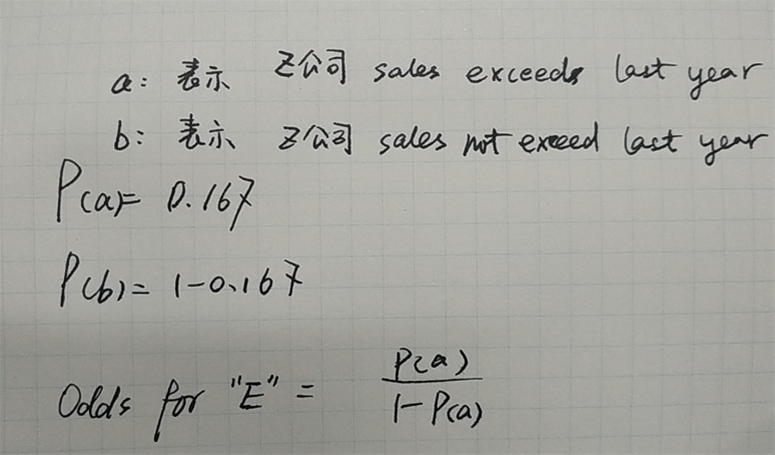 a: 表示 Z公司 sales exceeds last year
b: 表示 Z公司 sales not exceed last year
P(a)= 0.167
P(b)= 1-0.167
Odds for "E" = P(a) / 1-P(a)